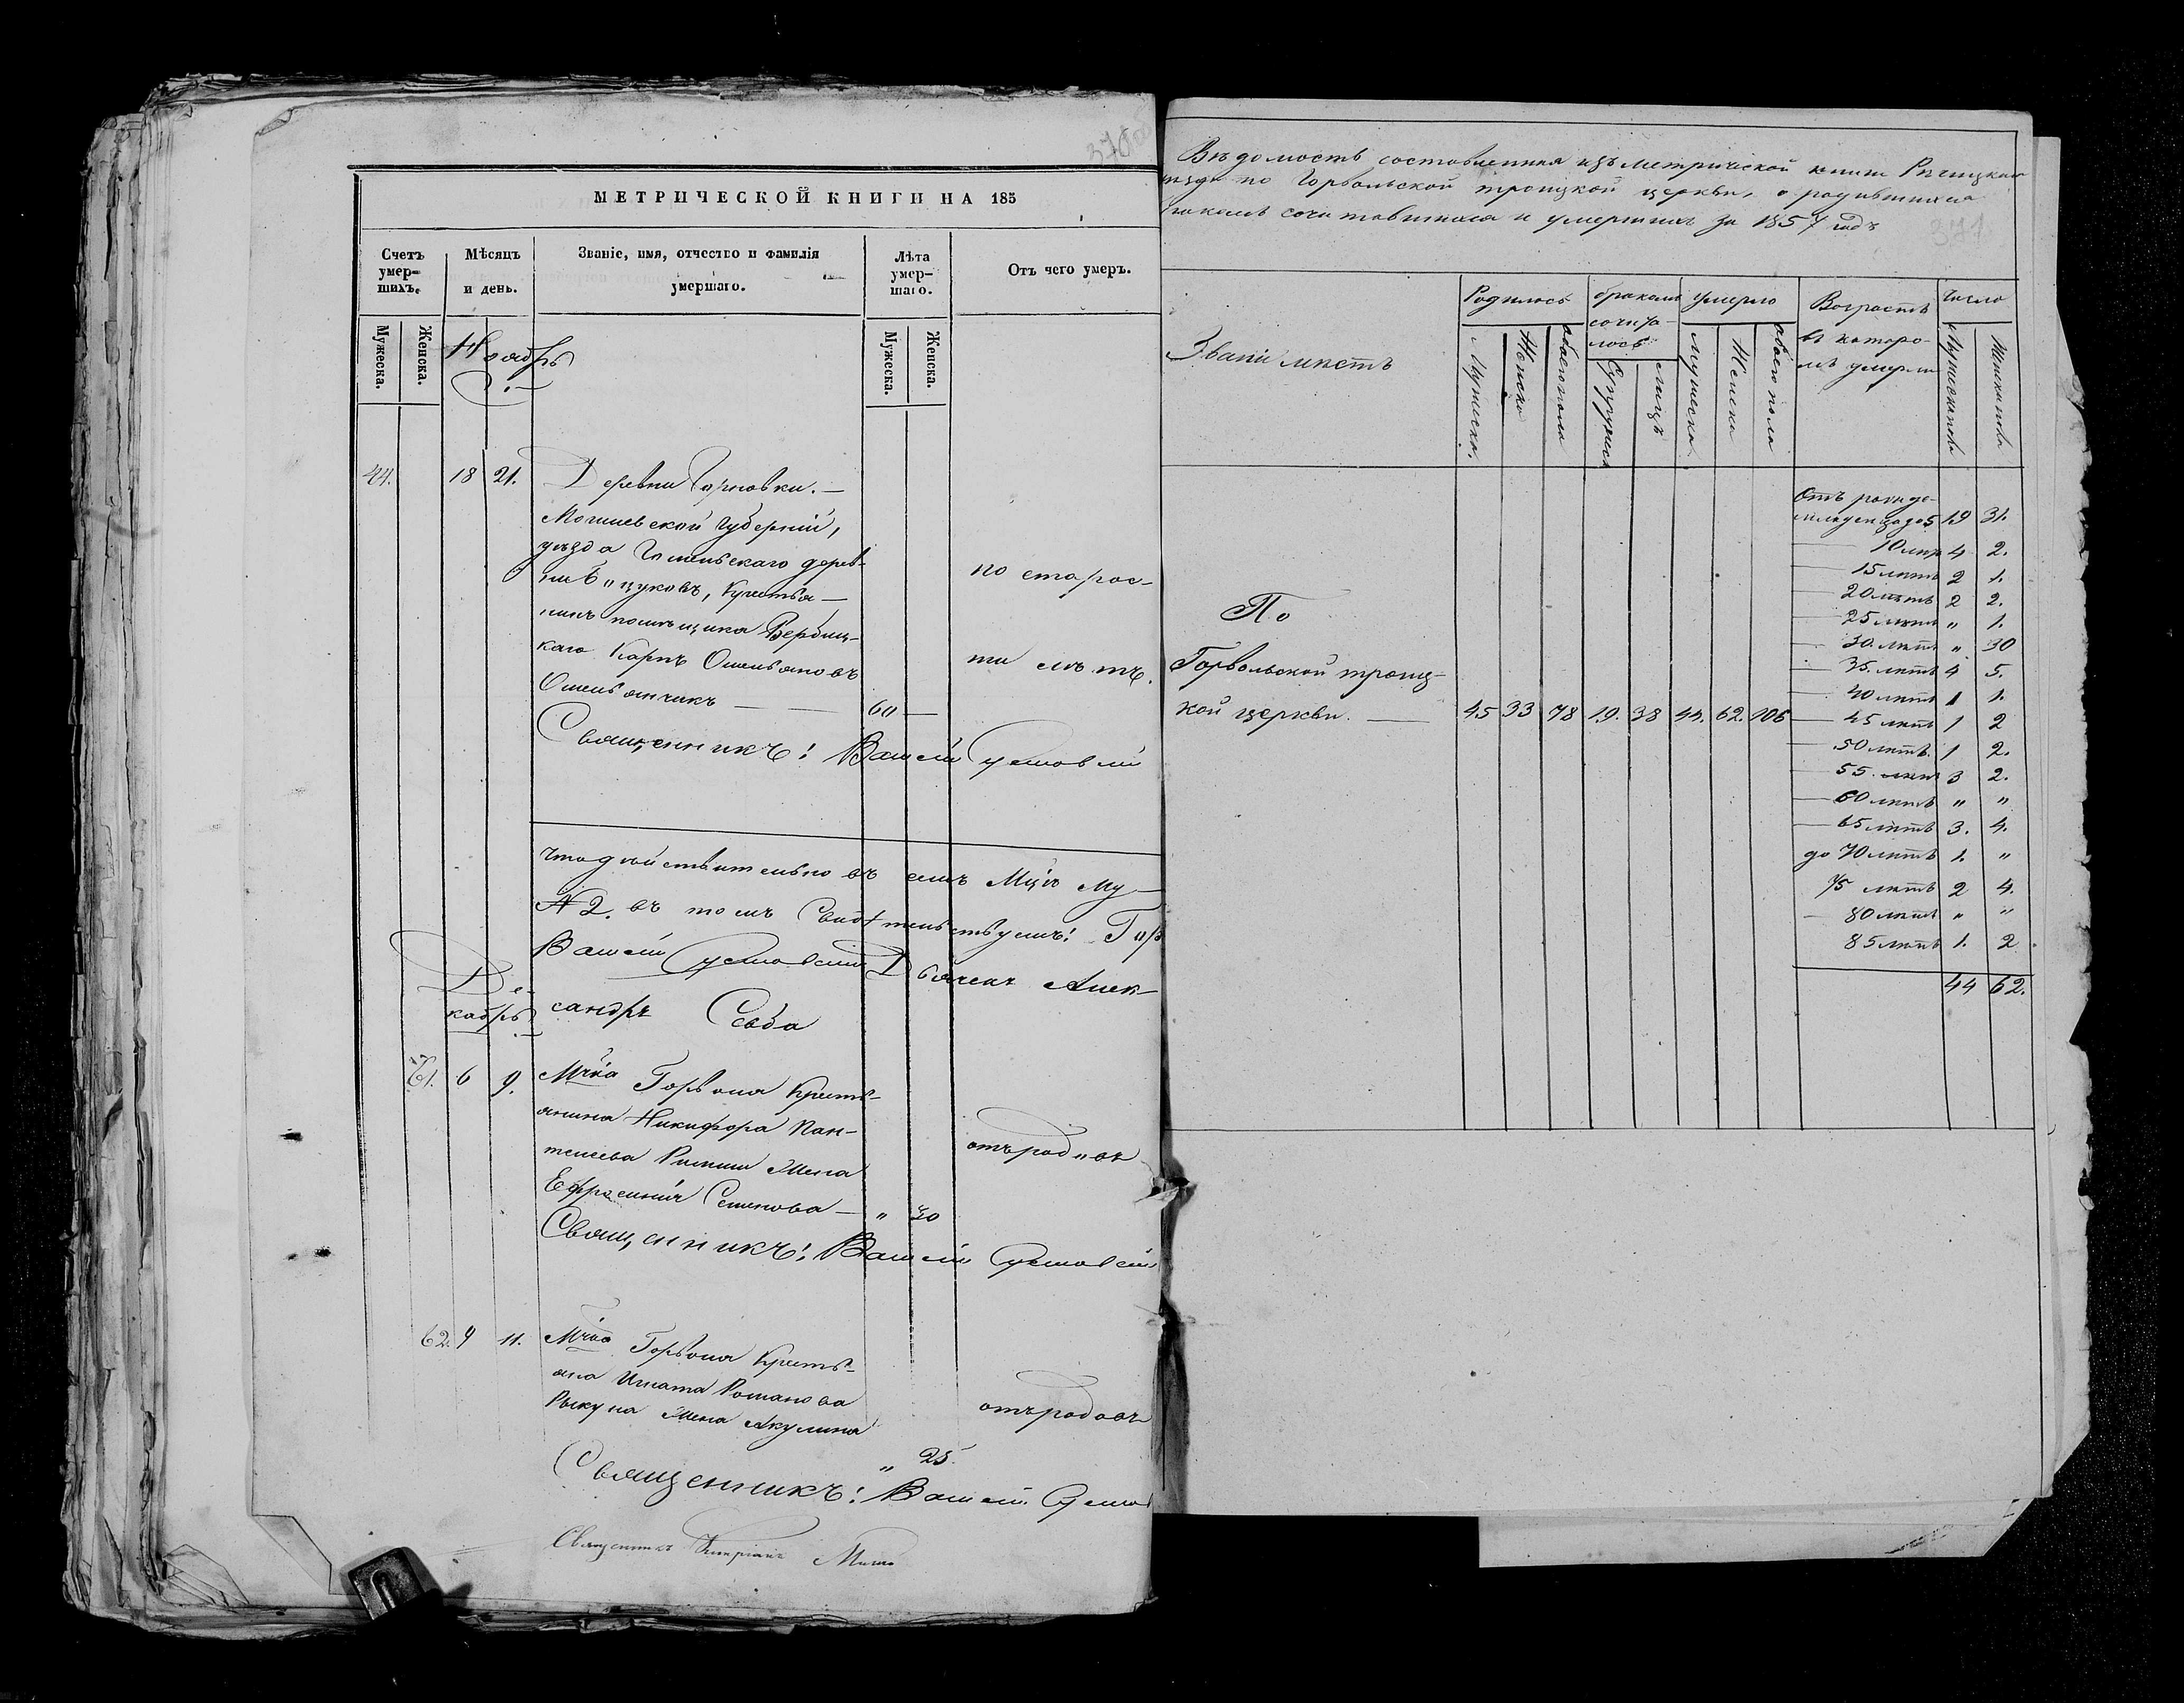 370 об
МЕТРИЧЕСКОЙ КНИГИ НА 185
Счетъ умер-шихъ.
Мѣсяцъ и день.
Званіе, имя, отчество и фамилія умершаго.
Лѣта умер-шаго.
Отъ чего умеръ.
Мужеска.
Женска.
Ноябрь
Мужеска.
Женска.
44. 18 21. Деревни Горновки. —
Могилевской Губерніи,
уѣзда Гомельскаго дерев-
цуковъ, Крестья —
нинъ помѣщика Вербиц-
каго Карпъ Омельяновъ
Омельянчикъ — — 60 —
по старос-
ти лѣтъ.
Священникъ! Василій
что дѣйствительно въ семъ Мцѣ Му-
№ 2. въ томъ Свидѣтельствуемъ! Гор
Василій Дьячекъ Алек-
сандръ Савба
Де-
кабрь
61. 6 9. Мчка Горволя Кресть-
янина Никифора Пан-
телеева жена
Ефросинія Семенова — " 30
отъ родовъ
Священникъ! Василій
62. 9 11. Мчка Горволя Кресть-
яна Игната Романова
жена Акулина
" 25.
отъ родовъ
Священникъ! Василій
Священникъ
Вѣдомость составленная изъ метрической книги Речицкаго
уѣзда по Горвольской троицкой церкви, о родившихся
бракомъ сочитавшихся и умершихъ за 1857 годъ
371
Званіе мѣстъ
Родилось
Мужеска.
Женска
обоего пола
бракомъ сочита-лось
Супружест
лицъ
умерло
мужеска.
Женска
обоего пола
Возрастъ
въ которо-
мъ умерли
Число
Мужеска пола
Женска пола
По
Горвольской троиц-
кой церкви. — 45 33 78 19. 38 44. 62. 106
Отъ рожде-
до 5 19 31.
— 10 лѣтъ 4 2.
— 15 лѣтъ 2 1.
— 20 лѣтъ 2 2.
— 25 лѣтъ " 1.
— 30. лѣтъ " 30
— 35. лѣтъ 4 5.
— 40 лѣтъ 1 1.
— 45 лѣтъ 1 2
— 50 лѣтъ. 1 2.
— 55. лѣтъ 3 2.
— 60 лѣтъ " "
— 65 лѣтъ 3. 4.
до 70 лѣтъ 1. "
75 лѣтъ 2 4.
— 80 лѣтъ " "
85 лѣтъ 1. 2
44 62.